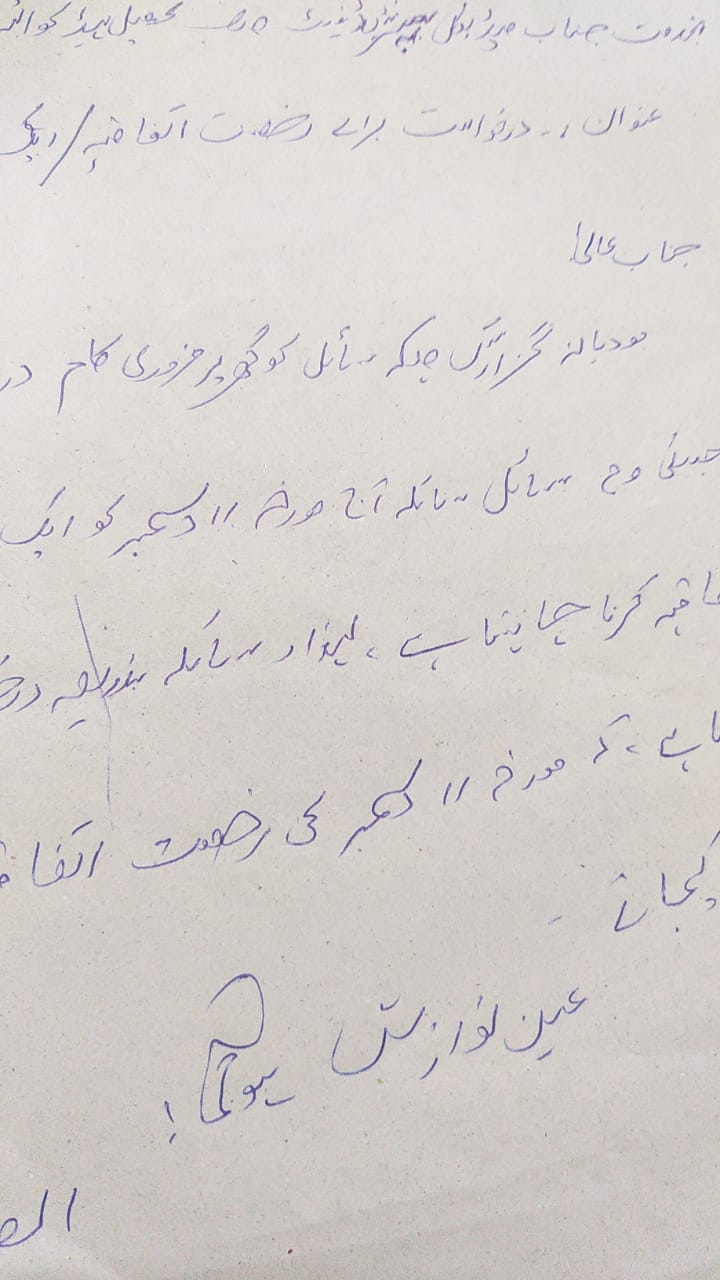 بخدمت جناب میڈیکل سپرنٹنڈنٹ صاحب تحصیل ہیڈ کوا
عنوان :۔ درخواست برائے رخصت اتفاقیہ / ایک
جناب عالی!
مودبانہ گزارش ہیکہ سائل کو گھر پر ضروری کام در
جسکی وجہ سائل آج مورخہ 11 دسمبر کو ایک
فاقیہ کرنا چاہتا ہے ، لہذا بذریعہ در
ہے ، کہ مورخہ 11 دسمبر کی رخصت اتفا
کیجائے ۔
عین نوازش ہوگی !
الع